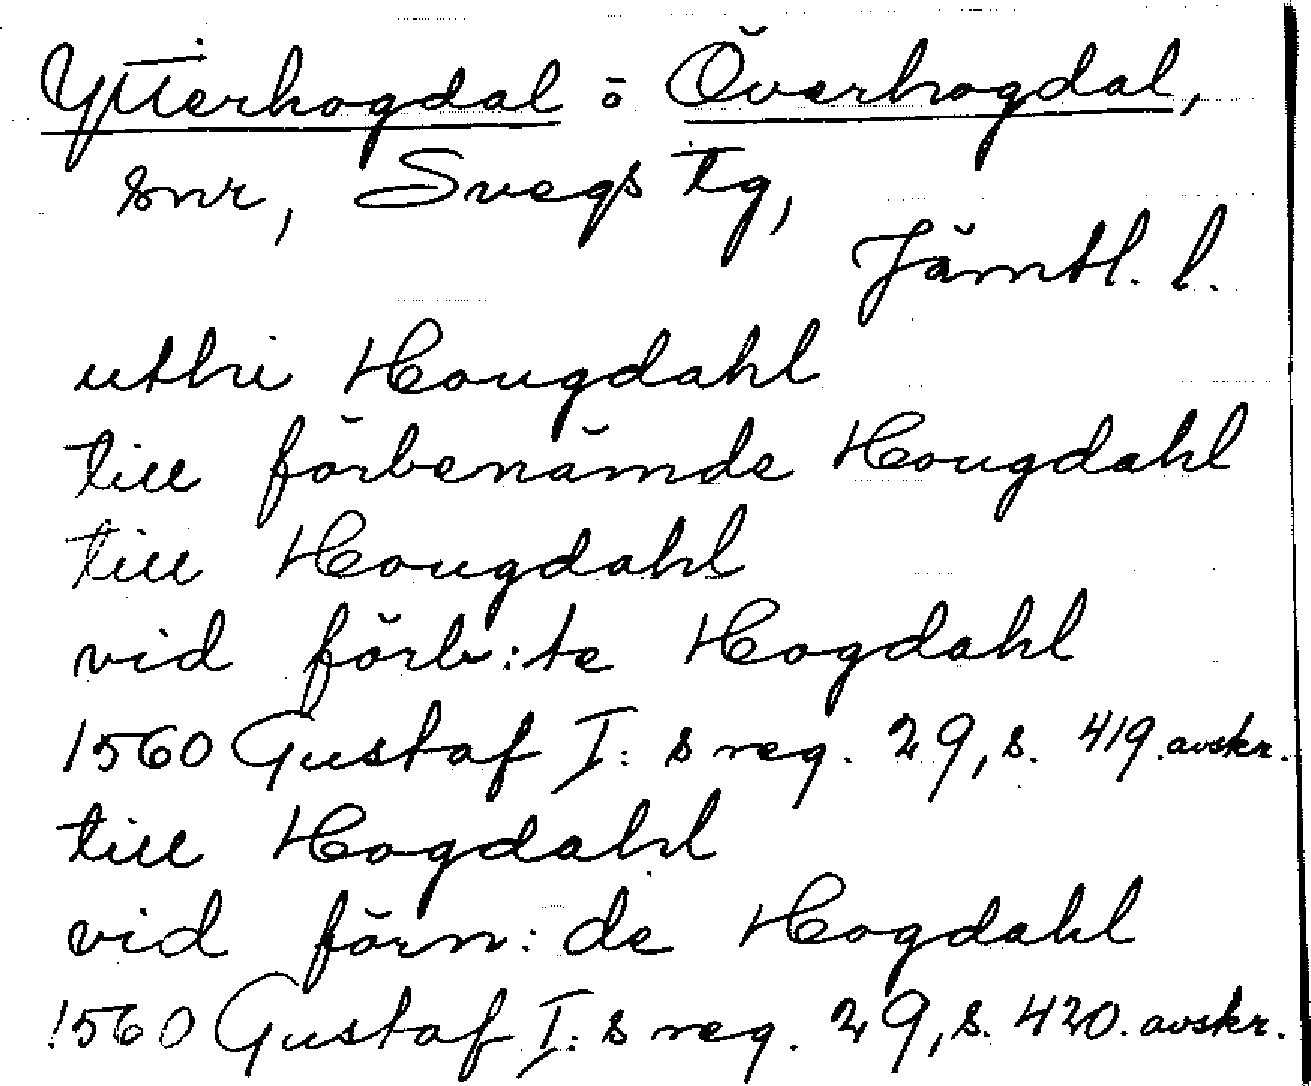 Ytterhogdal o Överhogdal,
snr, Svegs tg,
Jämtl. l.
uthi Hougdahl
till förbenämde Hougdahl
till Hougdahl
vid förb:te Hogdahl
1560 Gustaf I:s reg. 29, s. 419. avskr.
till Hogdahl
vid förn:de Hogdahl
1560 Gustaf I:s reg. 29, s. 420. avskr.